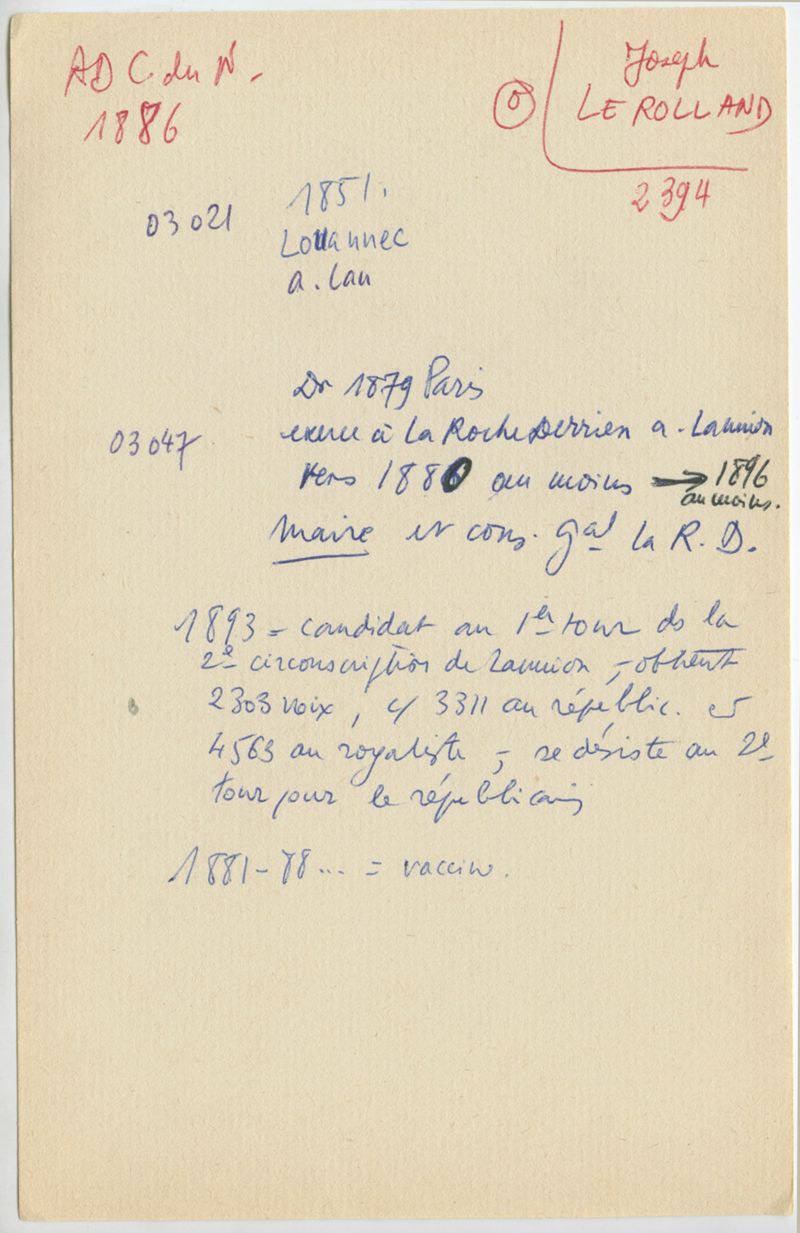 AD C. du N.
1886
Joseph
LE ROLLAND
2394
03 021
1851.
Louannec
a. Lan
Dr 1879 Paris
03 047
exerce à La Roche Derrien a. Lannion
vers 1880 au moins → 1896
au moins.
Maire et cons. gal la R. D.
1893 = candidat au 1er tour ds la
2e circonscription de Lannion, - obtient
2303 voix, c/ 3311 au républic. et
4563 au royaliste, - se désiste au 2e
tour pour le républicain
1881-88... = vaccin.